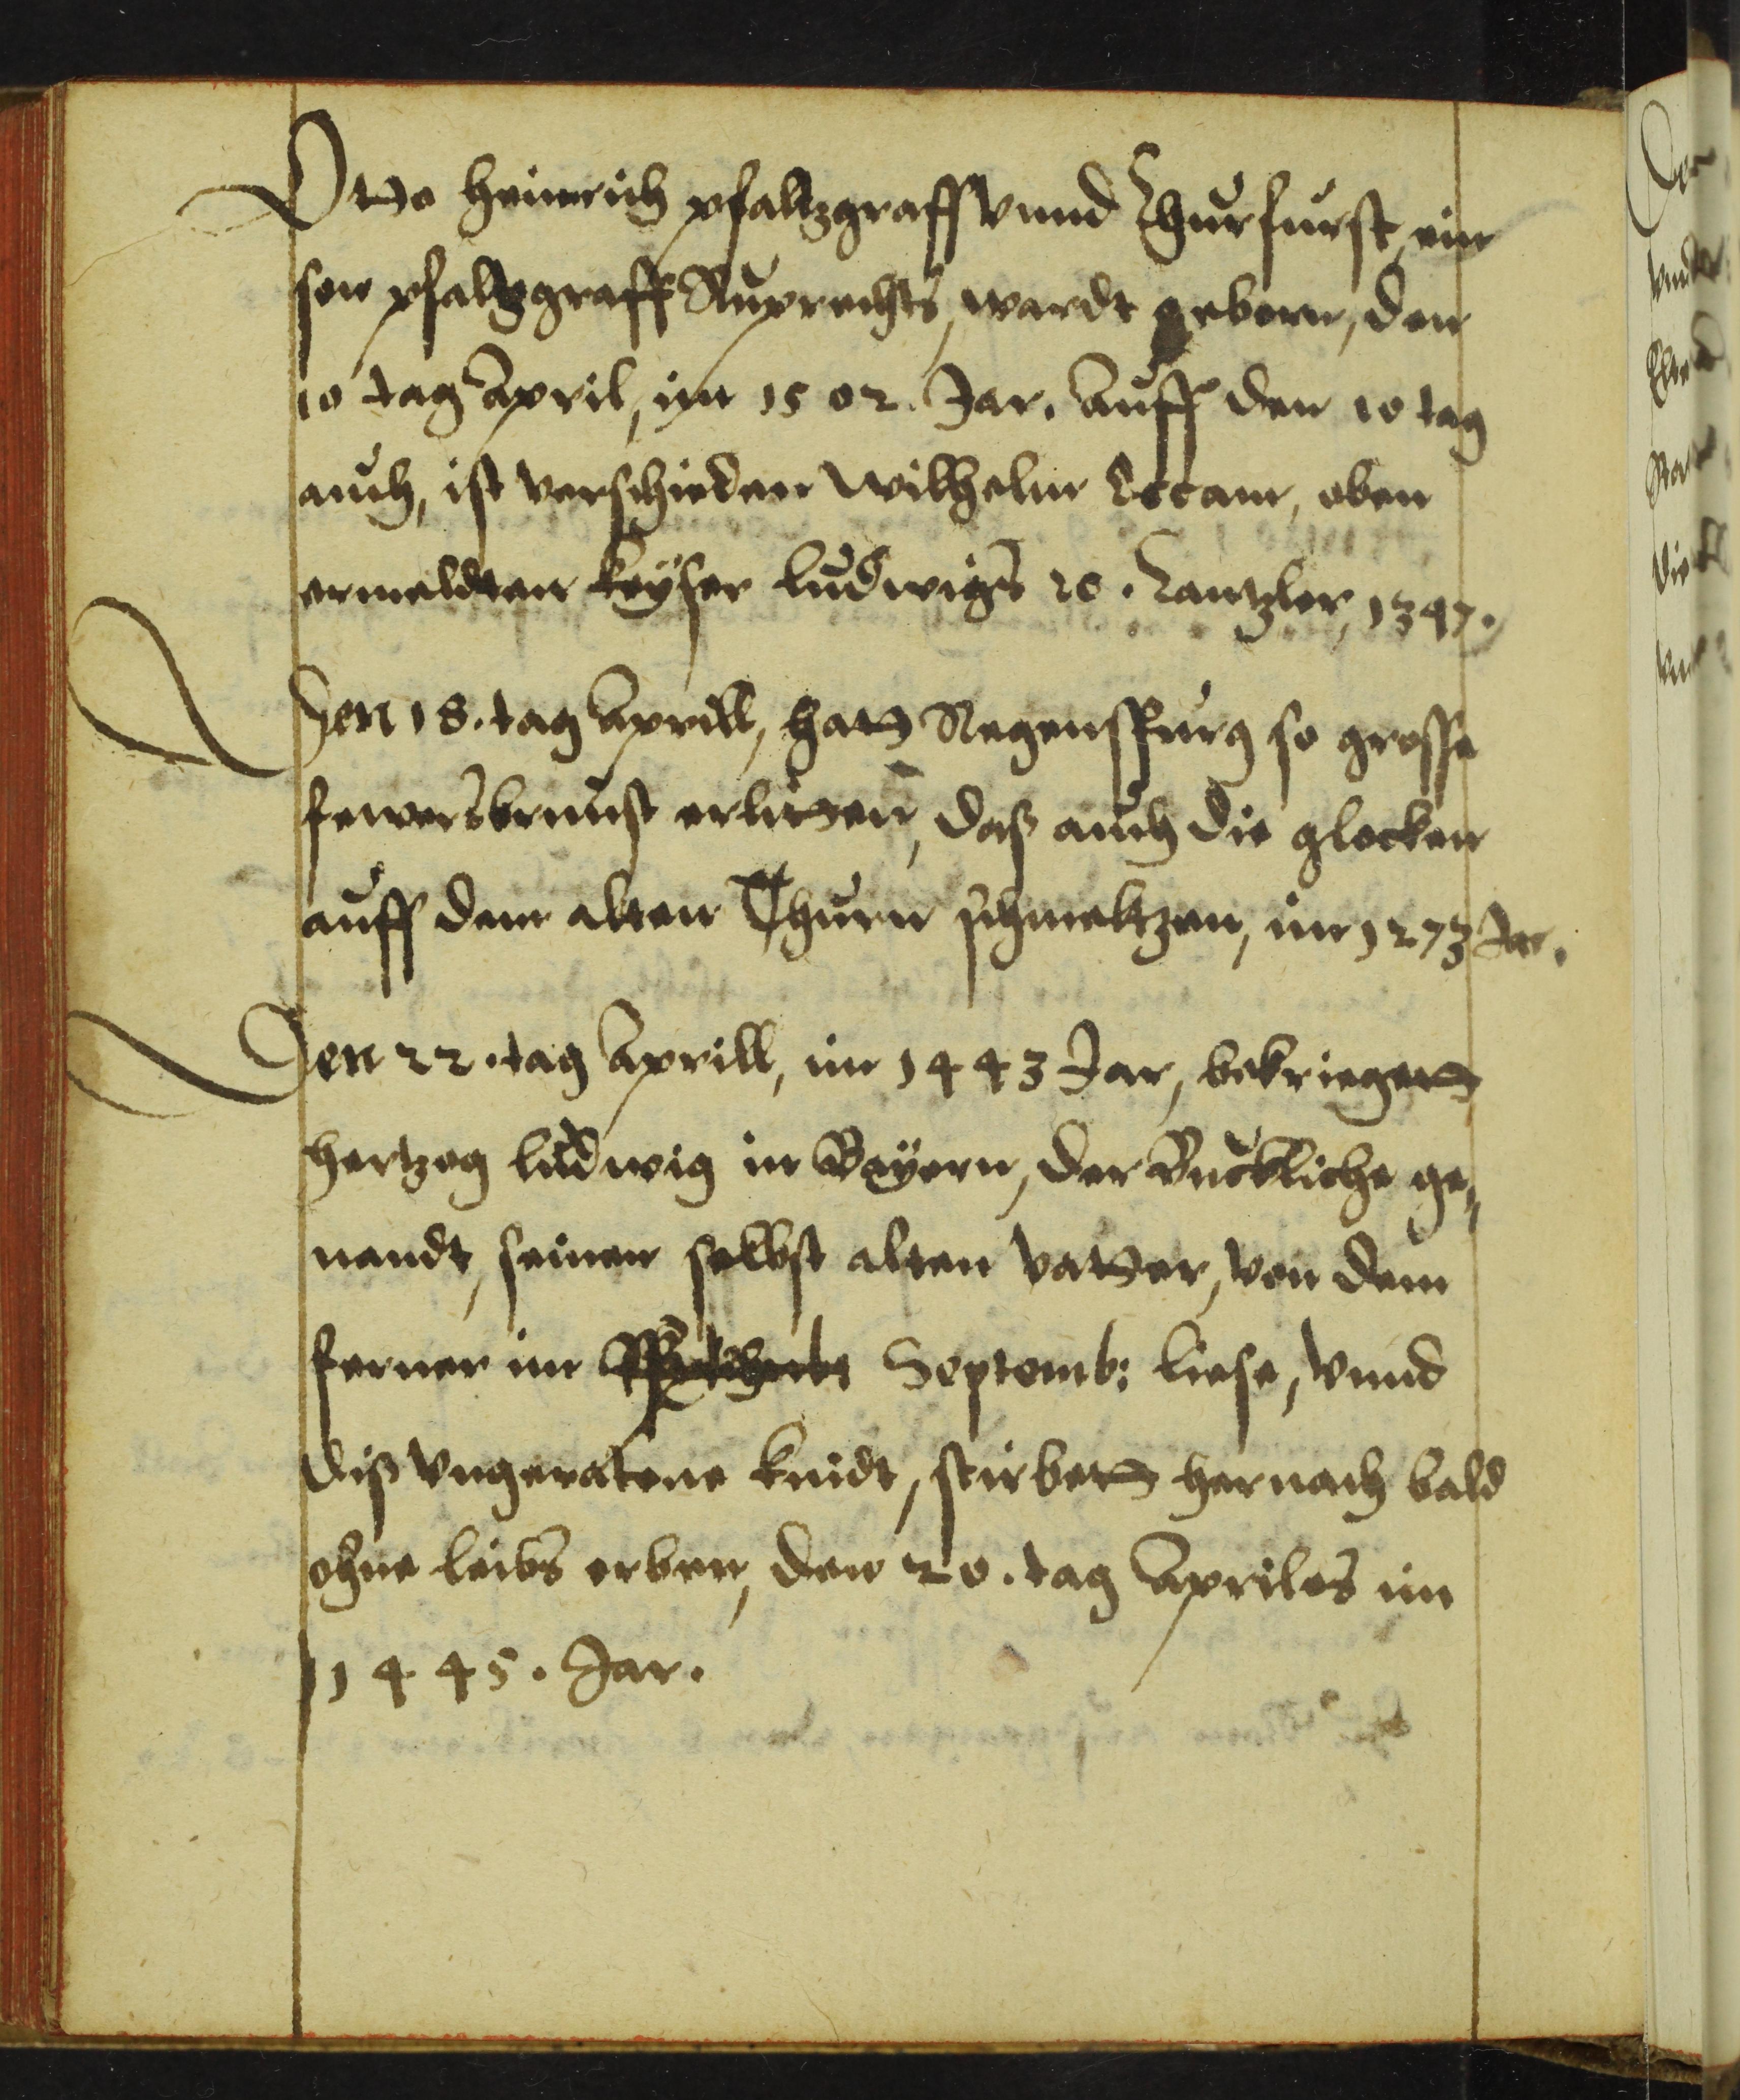 Otto Heinrich pfaltzgraff vnnd Churfurst, ein
son pfaltzgraff Ruprechts, wardt geborn, den
10 tag April, im 1502. Jar. Auff den 10 tag
auch, ist verschieden Wilhelm Occam, oben
ermeldten keyser Ludwigs 20. Cantzler, 1347.
Den 18. tag Aprill, hatt Regenspurg so grosse
fewersbrunst erlitten, daß auch die glocken
auff dem alten Thurn schmeltzen, im 1273 Jar.
Den 22. tag Aprill, im 1443 Jar, bekriegett
hertzog Ludwig in Bayern, der Buckliche ge,
nandt, seinen selbst alten vatter, von dem
ferner im Septemb: liese, vnnd
diß vngeratene kindt, stirbett hernach bald
ohne leibs erben, den 20. tag Apriles im
1445. Jar.